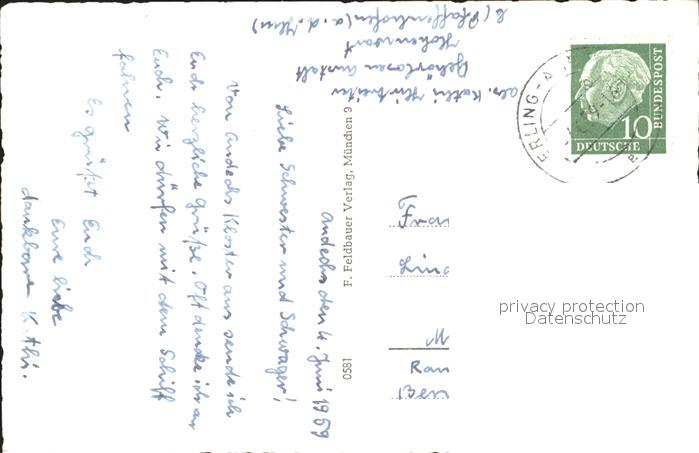 Andechs den 4. Juni 1959
Liebe Schwester und Schwager!
Von Andechs Kloster aus sende ich
Euch herzliche Grüße. Oft denke ich an
Euch. Wir dürfen mit dem Schiff
fahren
Es grüßt Euch
Eure liebe
dankbare K. thi.
abs. Kathi
Gehörlosen Anstalt
Hohenwart
b (Pfaffenhofen (a. d. Ilm)
F. Feldbauer Verlag, München 9
0581
ERLING-A
10
DEUTSCHE
BUNDESPOST
Frau
Linc
M
Ran
Ben
privacy protection
Datenschutz